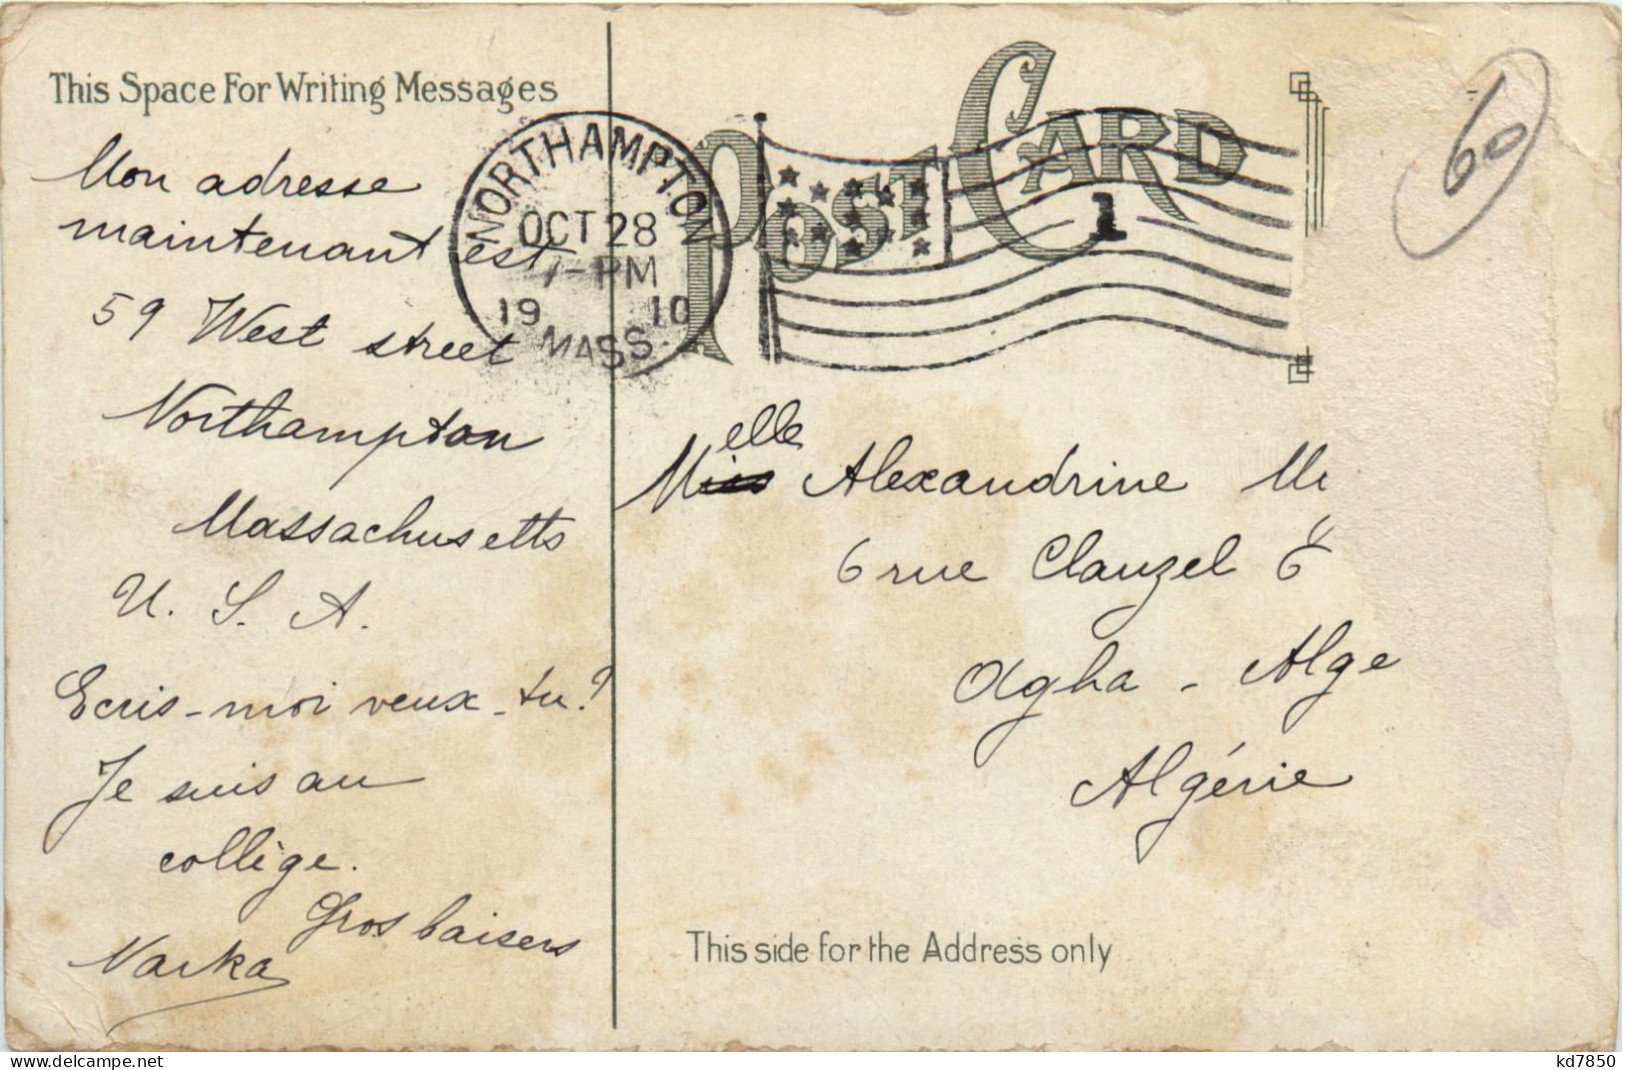 This Space For Writing Messages
POST CARD
NORTHAMPTON
OCT 28
7-PM
19 10
MASS.
1
60
Mon adresse
maintenant est
59 West street
Northampton
Massachusetts
U. S. A.
Ecris-moi veux-tu?
Je suis au
collège.
Gros baisers
Narka
elle
Miss Alexandrine
6 rue Clauzel 6
Agha - Alge
Algérie
This side for the Address only
delcampe.net
kd7850